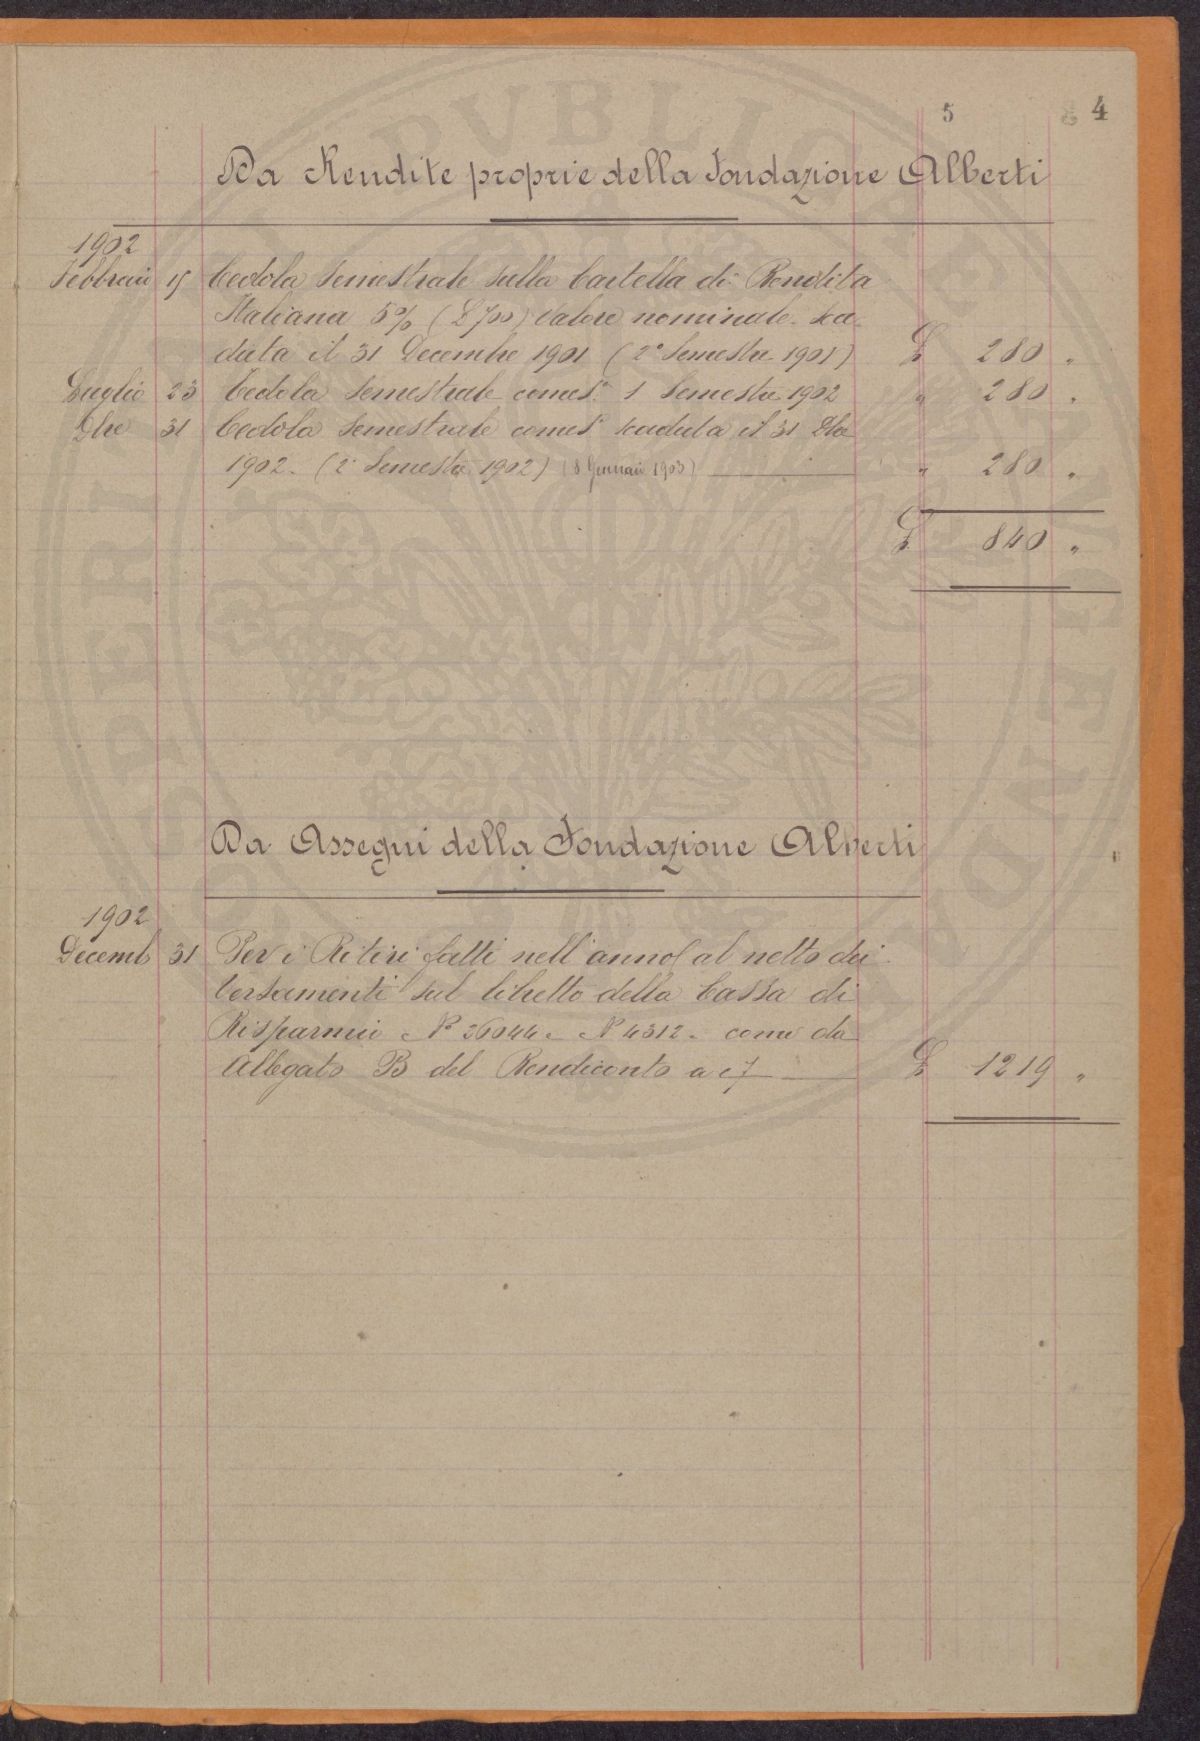 5 4
Da Rendite proprie della Fondazione Alberti
1902
Febbraio 15 Cedola Semestrale sulla Cartella di Rendita
Italiana 5% (£ 700) Valore nominale sca-
duta il 31 Decembre 1901 (2° Semestre 1901) £ 280 "
Luglio 23 Cedola Semestrale come sª 1 Semestre 1902 " 280 "
Dbre 31 Cedola Semestrale come sª scaduta il 31 Dbre
1902 - (2° Semestre 1902) (8 Gennaio 1903) " 280 "
£ 840 "
Da Assegni della Fondazione Alberti
1902
Decemb 31 Per i Ritiri fatti nell'anno (al netto dei
Versamenti sul libretto della Cassa di
Risparmio N° 26044 - N 4312 - come da
Allegato B del Rendiconto a c 7 £ 1219 "